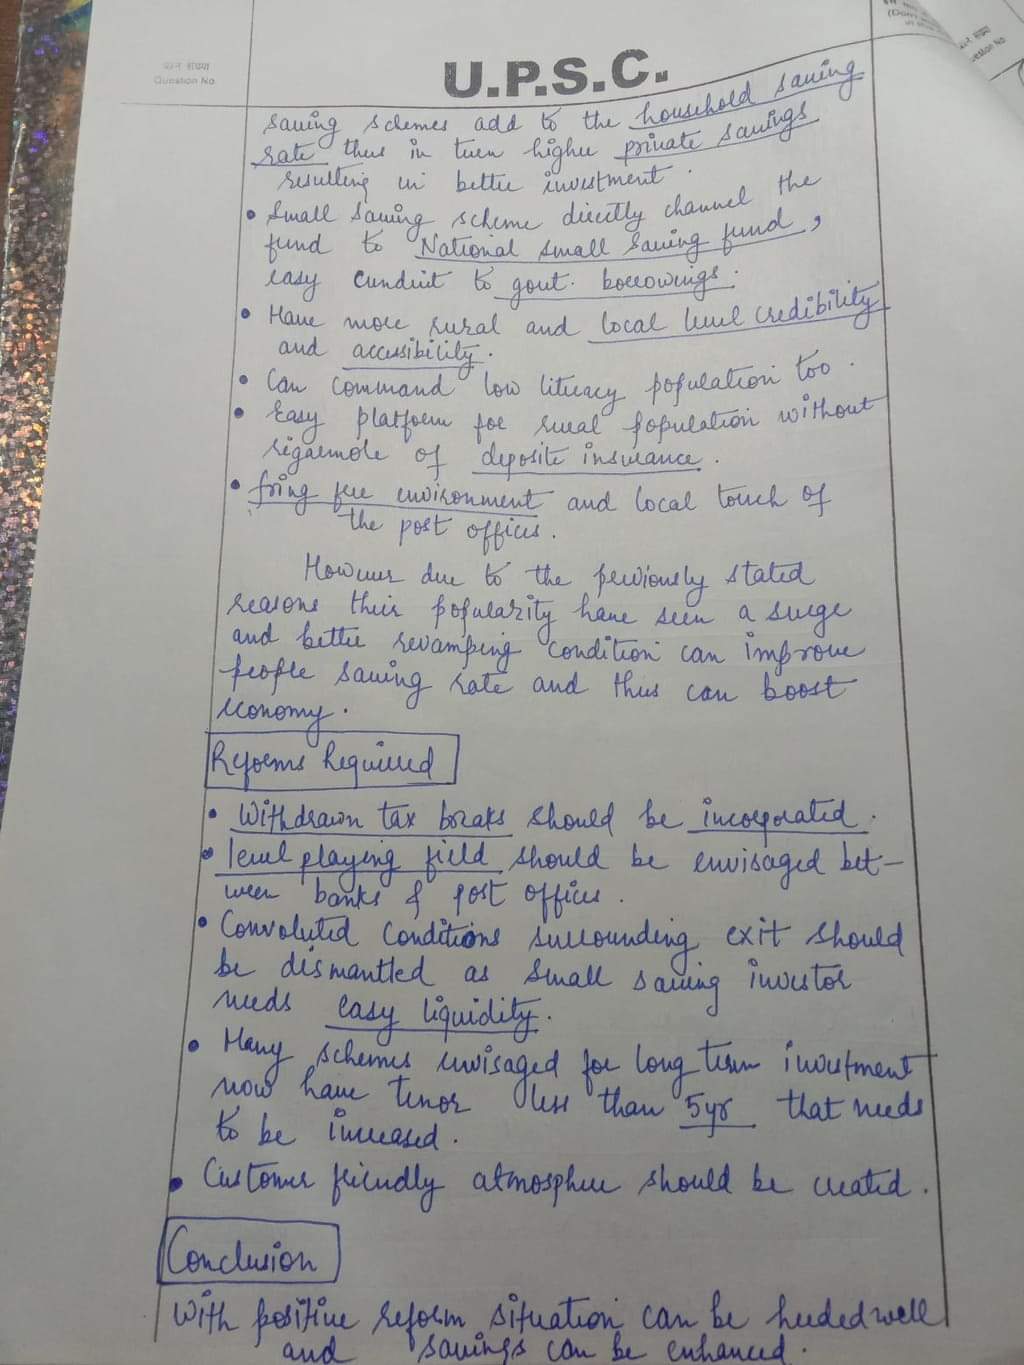 प्रश्न संख्या
Question No.
U.P.S.C.
(Don't
Question No.
saving schemes add to the household saving
rate thus in turn higher private savings
resulting in better investment.
• Small saving scheme directly channel the
fund to National small saving fund,
easy conduit to govt. borrowings.
• Have more rural and local level credibility
and accessibility.
• Can command low literacy population too.
• Easy platform for rural population without
rigarmole of deposite insurance.
• fring free environment and local touch of
the post offices.
However due to the previously stated
reasons their popularity have seen a surge
and better revamping condition can improve
people saving rate and thus can boost
economy.
Reforms Required
• Withdrawn tax breaks should be incorporated.
• level playing field should be envisaged bet-
ween banks & post offices.
• Convoluted conditions surrounding exit should
be dismantled as small saving investor
needs easy liquidity.
• Many schemes envisaged for long term investment
now have tenor less than 5yr that needs
to be increased.
• Customer friendly atmosphere should be created.
Conclusion
With positive reform situation can be heeded well
and savings can be enhanced.